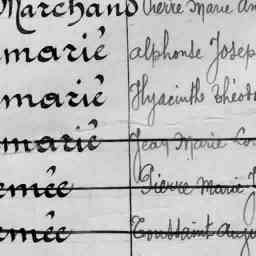 Marchand Pierre Marie
marié alphonse Josep
marié Hyacinthe Théod
marié Jean Marie Lou
rmée Pierre Marie
rmée Toussaint Augu